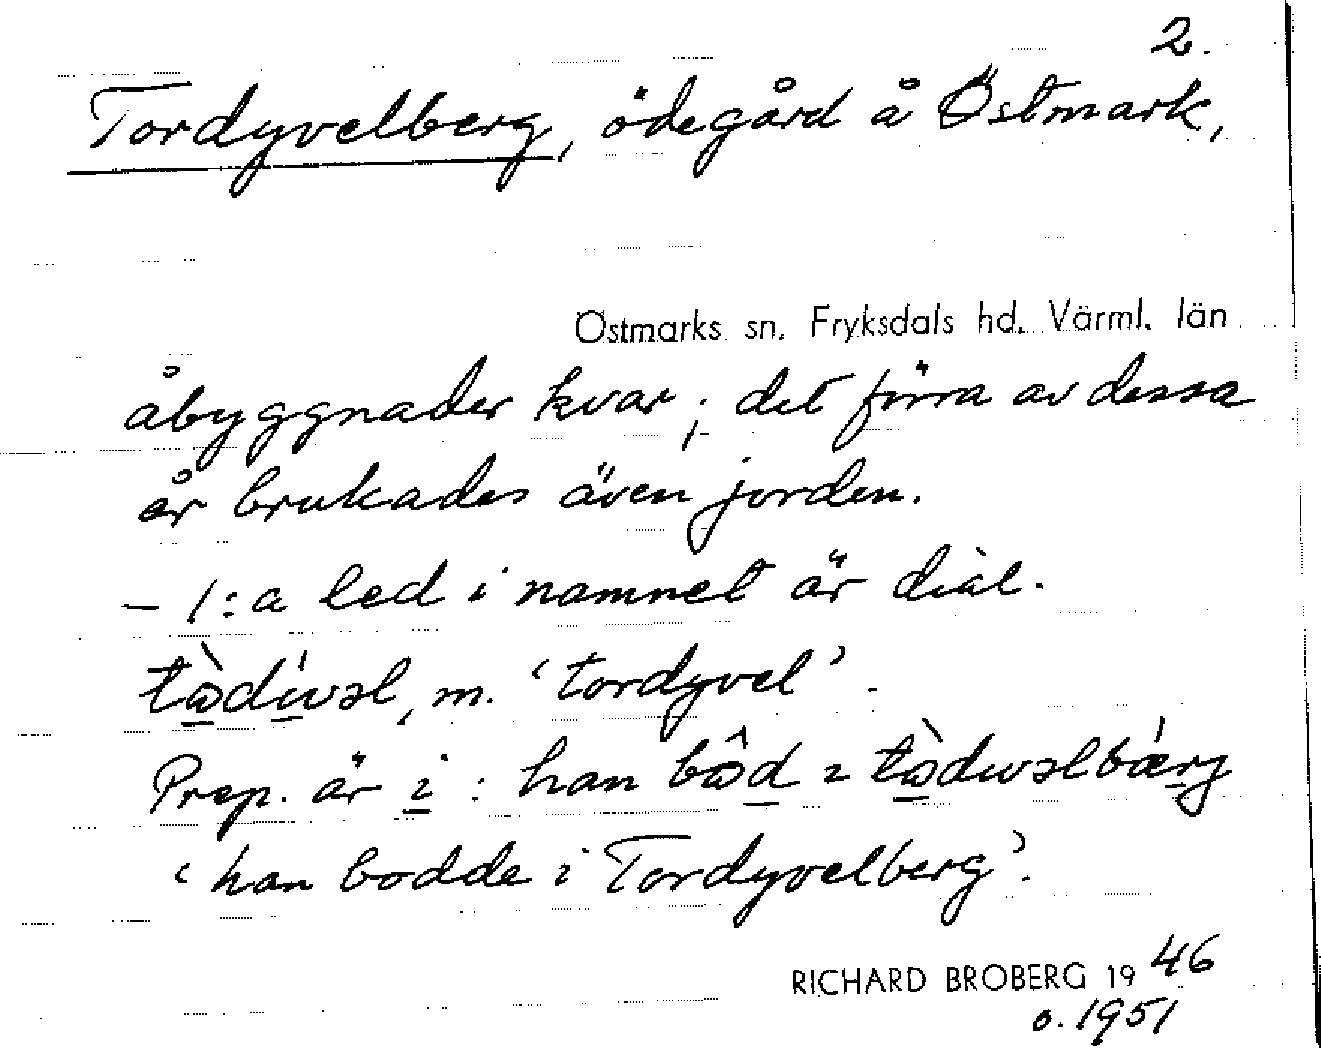 2.
Tordyvelberg, ödegård å Östmark,
Östmarks sn. Fryksdals hd. Värml. län
åbyggnader kvar; det förra av dessa
år brukades även jorden.
– 1:a led i namnet är dial.
tɷ̀dɩ́vəl, m. ‘tordyvel’.
Prep. är i : han bɷ̂d ɩ tɷ̀dɩvəlbǽrj
‘han bodde i Tordyvelberg’.
RICHARD BROBERG 1946
o. 1951